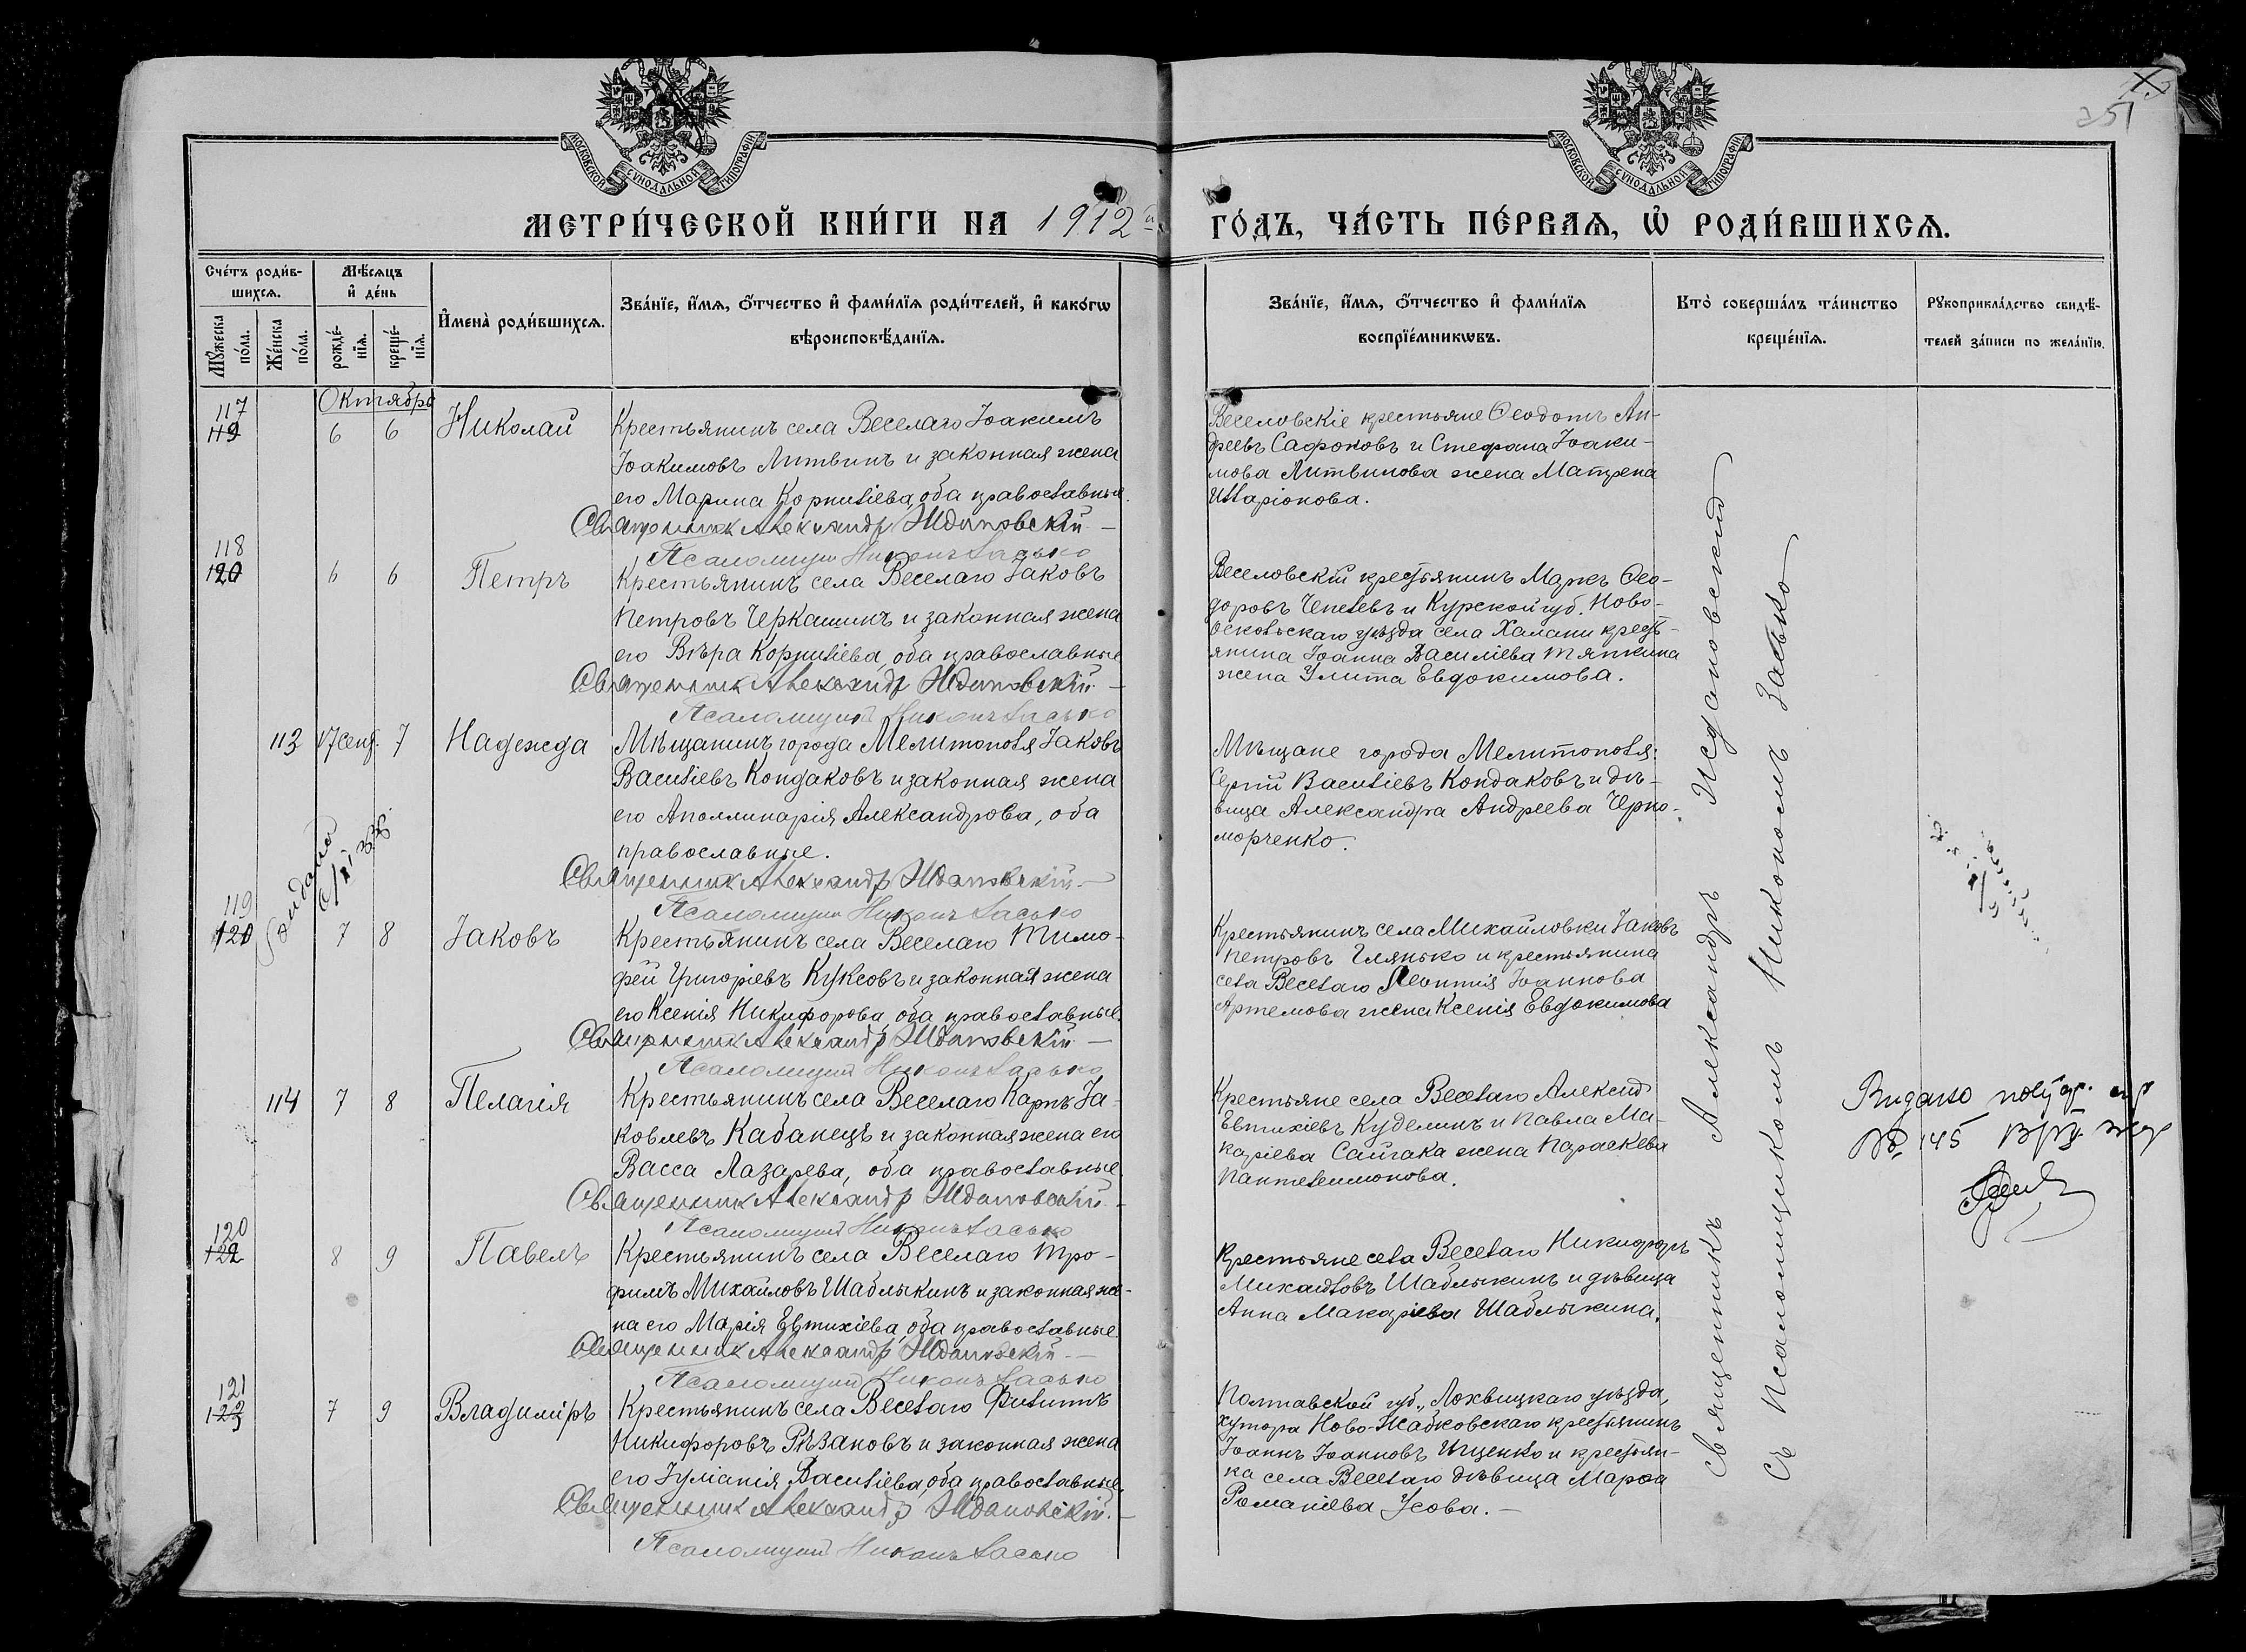 251
МОСКОВСКОЙ СѴНОДАЛЬНОЙ ТИПОГРАФІИ
МОСКОВСКОЙ СѴНОДАЛЬНОЙ ТИПОГРАФІИ
МЕТРИ́ЧЕСКОЙ КНИ́ГИ НА 1912й ГО́ДЪ, ЧА́СТЬ ПЕ́РВАѦ, Ѡ҆ РОДИ́ВШИХСѦ.
Сче́тъ роди́в-
шихсѧ.
Мꙋ́жеска
по́ла.
Же́нска
по́ла.
Мѣ́сѧцъ
и҆ де́нь
рожде́-
нїѧ.
креще́-
нїѧ.
И҆мена̀ роди́вшихсѧ.
Зва́нїе, и҆́мѧ, ѻ҆́тчество и҆ фами́лїѧ роди́телей, и҆ како́гѡ
вѣроисповѣ́данїѧ.
Зва́нїе, и҆́мѧ, ѻ҆́тчество и҆ фами́лїѧ
воспрїе́мникѡвъ.
Кто̀ соверша́лъ та́инство
креще́нїѧ.
Рꙋкоприкла́дство свидѣ́-
телей за́писи по жела́нїю.
Октябрь
117
119
6 6 Николай
Крестьянинъ села Веселаго Іоакимъ
Іоакимовъ Литвинъ и законная жена
его Марина Корниліева, оба православные.
Священникъ Александр Ждановскій
Псаломщик Никонъ Засько
Веселовскіе крестьяне Ѳеодотъ Ан-
дреевъ Сафоновъ и Стефана Іоаки-
мова Литвинова жена Матрена
Иларіонова.
118
120
6 6 Петръ
Крестьянинъ села Веселаго Іаковъ
Петровъ Черкашинъ и законная жена
его Вѣра Корниліева, оба православные
Священник Александр Ждановскій
Псаломщик Никонъ Засько
Веселовскій крестьянинъ Маркъ Ѳео-
доровъ Чепелевъ и Курской губ. Ново-
оскольскаго уѣзда села Халани кресть-
янина Іоанна Василіева Тяпкина
жена Улита Евдокимова.
113 17 сент. 7 Надежда
Мѣщанинъ города Мелитополя Іаковъ
Василіевъ Кондаковъ и законная жена
его Аполлинарія Александрова, оба
православные.
Священник Александр Ждановскій
Псаломщик Никонъ Засько
Мѣщане города Мелитополя:
Сергій Василіевъ Кондаковъ и дѣ-
вица Александра Андреева Черно-
морченко.
119
120
7 8 Іаковъ
Крестьянинъ села Веселаго Тимо-
фей Григоріевъ Куксовъ и законная жена
его Ксенія Никифорова, оба православные.
Священник Александр Ждановскій
Псаломщик Никонъ Засько
Крестьянинъ села Михайловки Іаковъ
Петровъ Глянько и крестьянина
села Веселаго Леонтія Іоаннова
Артемова жена Ксенія Евдокимова
114 7 8 Пелагія
Крестьянинъ села Веселаго Карпъ Іа-
ковлевъ Кабанецъ и законная жена его
Васса Лазарева, оба православные.
Священник Александр Ждановскій
Псаломщик Никонъ Засько
Крестьяне села Веселаго Алексій
Евтихіевъ Куделинъ и Павла Ма-
каріева Сайгака жена Параскева
Пантелеимонова.
№ 145
120
122
8 9 Павелъ
Крестьянинъ села Веселаго Тро-
фимъ Михаиловъ Шаблыкинъ и законная же-
на его Марія Евтихіева, оба православные
Священник Александр Ждановскій
Псаломщик Никонъ Засько
Крестьяне села Веселаго Никифоръ
Михаиловъ Шаблыкинъ и дѣвица
Анна Макаріева Шаблыкина.
121
123
7 9 Владиміръ
Крестьянинъ села Веселаго Филиппъ
Никифоровъ Рѣзановъ и законная жена
его Іуліанія Василіева, оба православные.
Священник Александр Ждановскій
Псаломщик Никонъ Засько
Полтавской губ., Лохвицкаго уѣзда,
хутора Ново-Жабковскаго крестьянинъ
Іоаннъ Іоанновъ Ищенко и крестьян-
ка села Веселаго дѣвица Марѳа
Романіева Усова.
Священникъ Александръ Ждановскій
съ псаломщикомъ Никономъ Засько